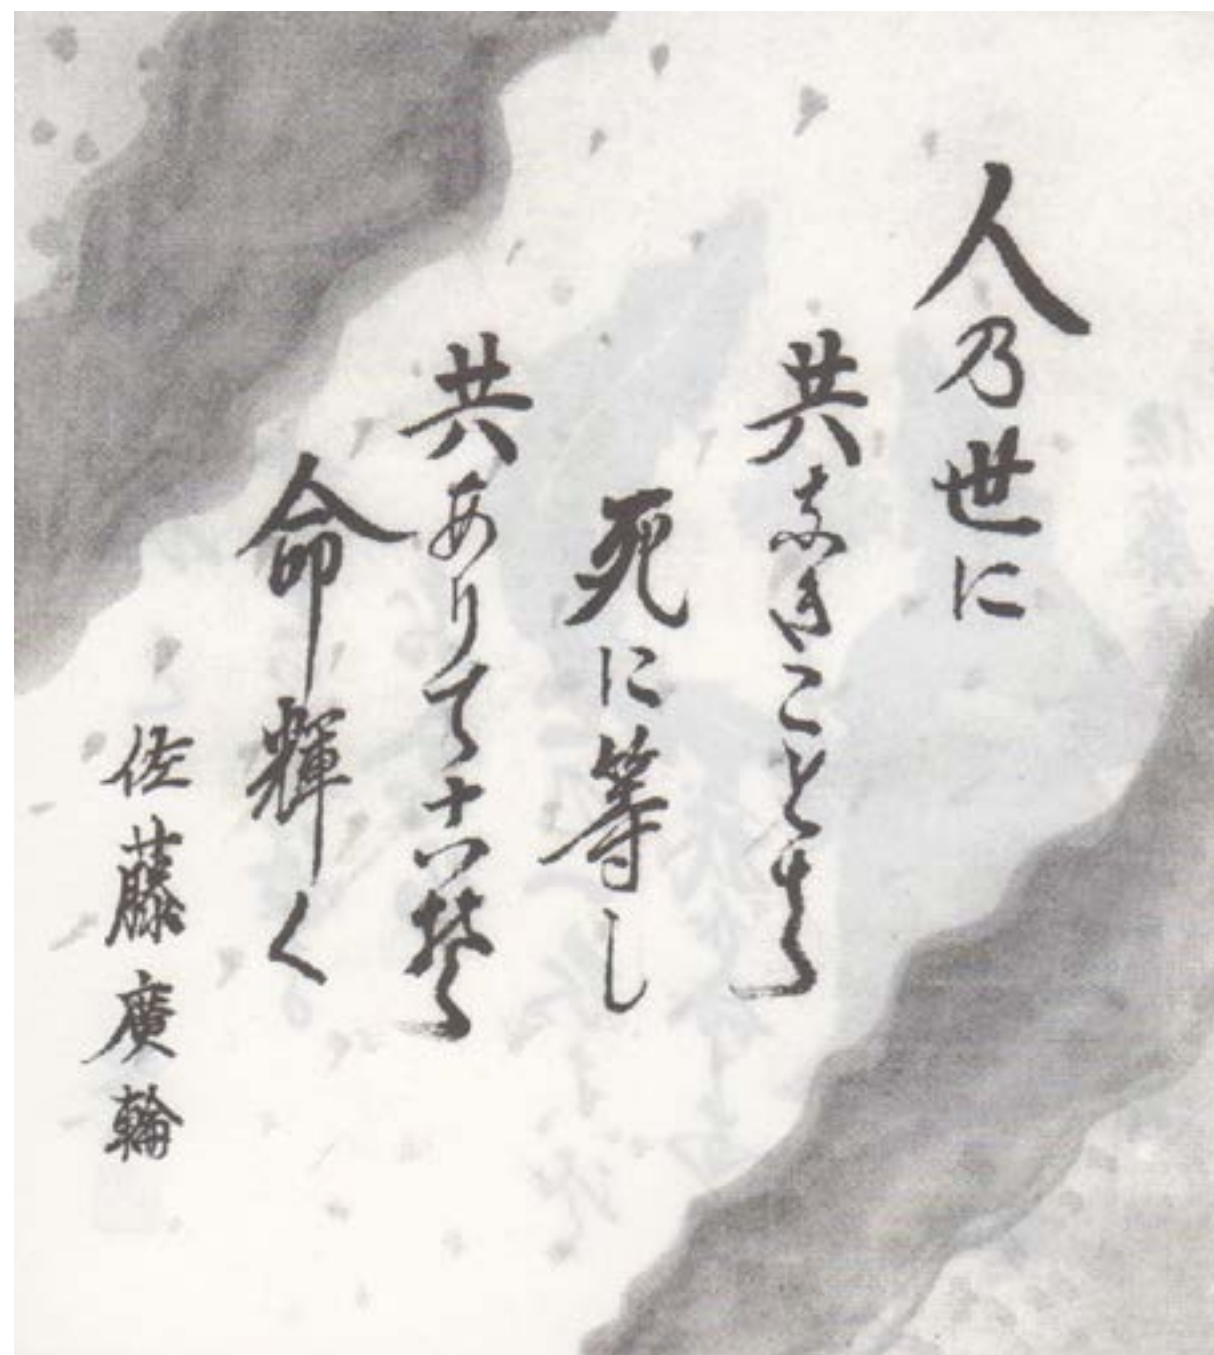 人乃世に
共なきことは
死に等し
共ありてこそ
命輝く
佐藤廣輪